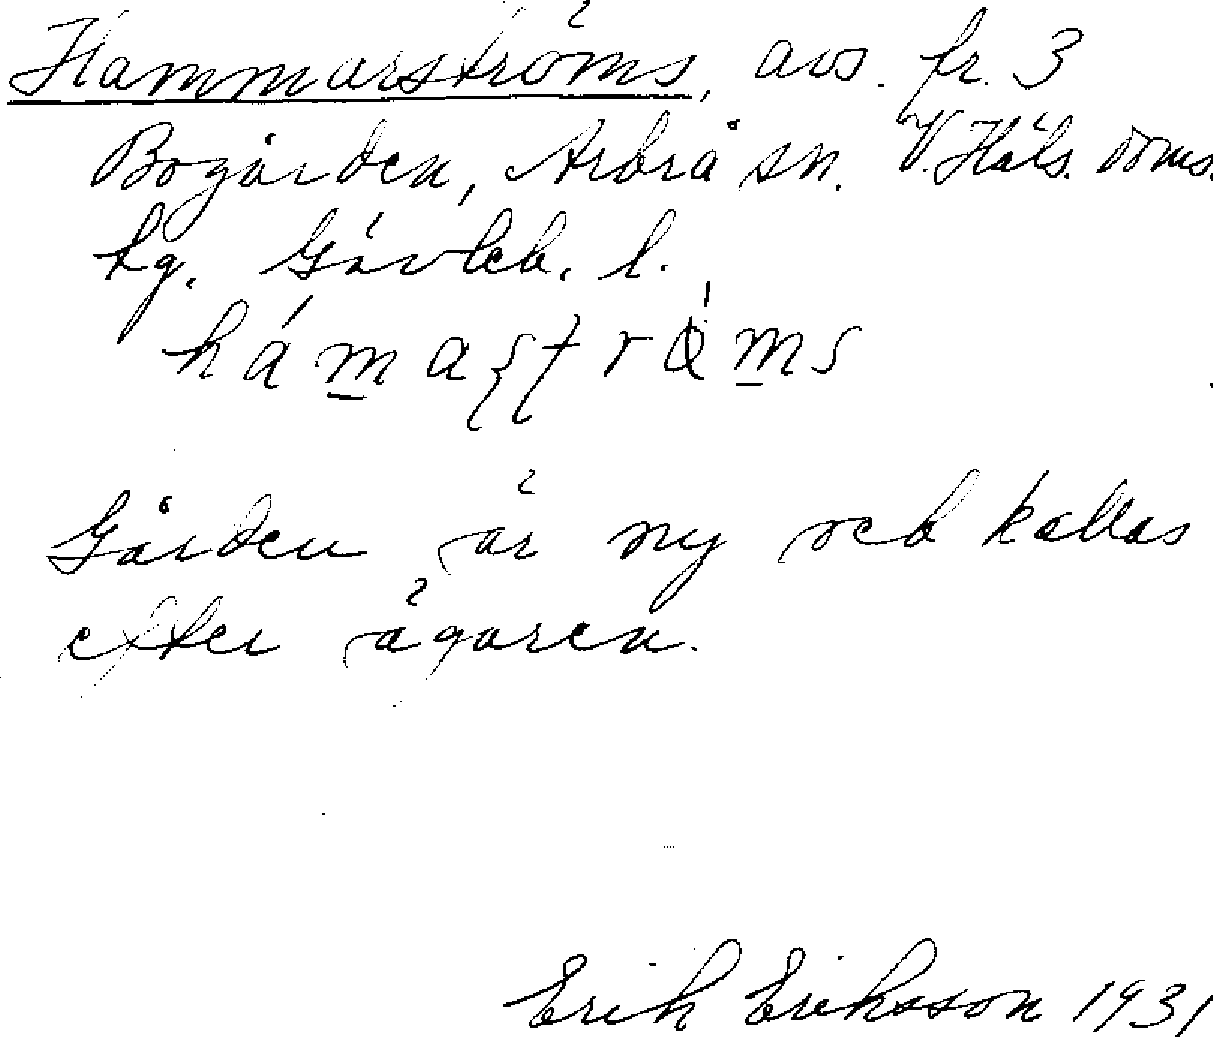 Hammarströms, avs. fr. 3
Bogården, Arbrå sn. V. Häls. doms.
hg. Gävleb. l.
Gården är ny och kallas
efter ägaren.
Erik Eriksson 1931